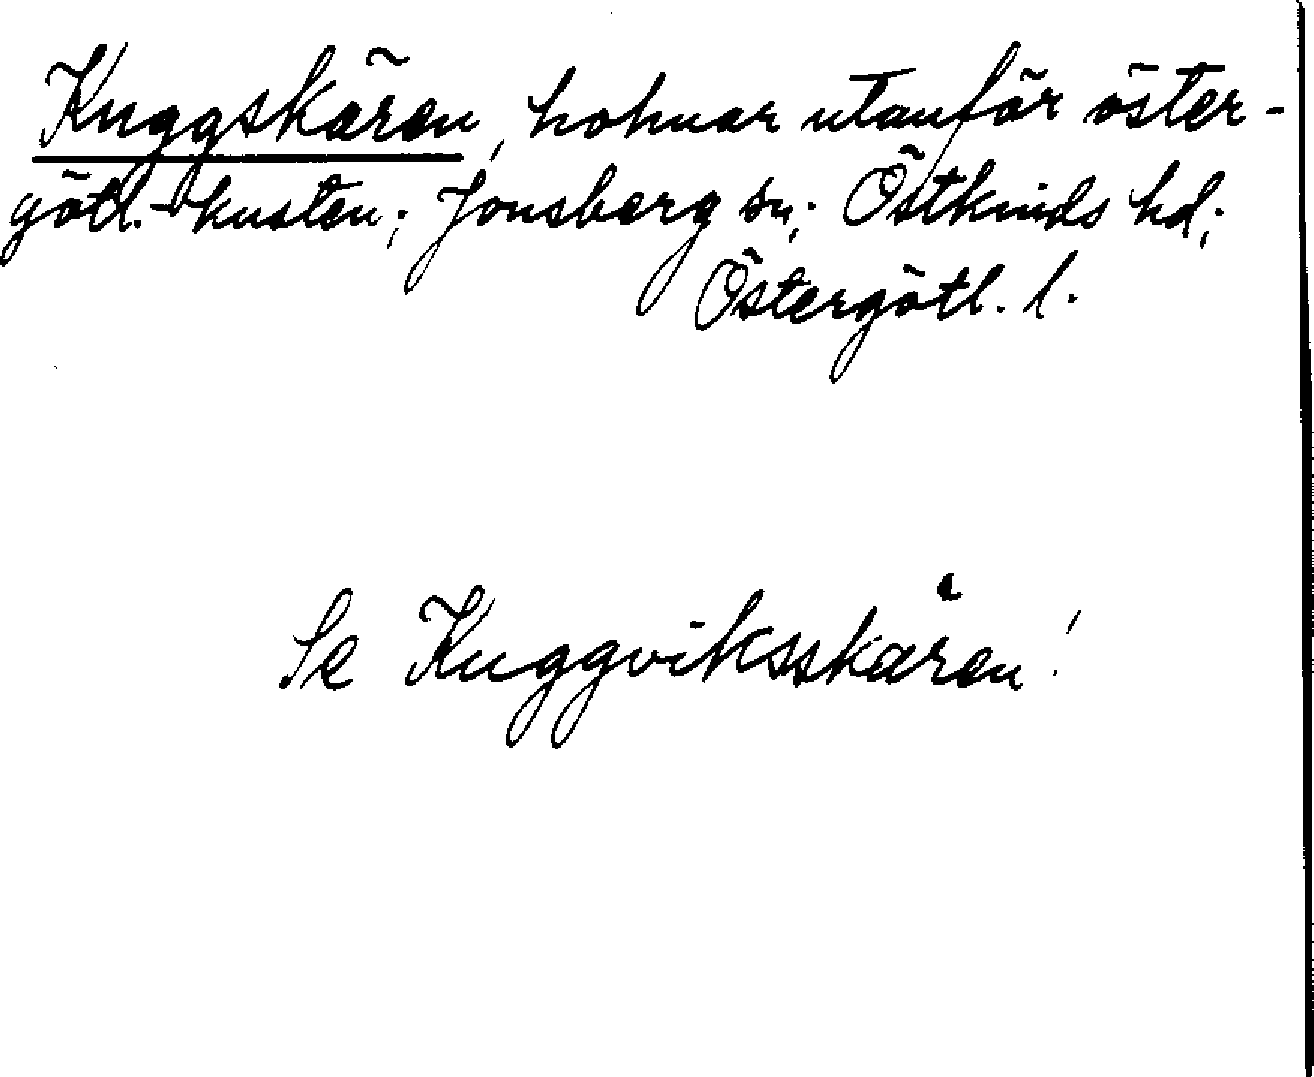 Kuggskären, holmar utanför öster-
götl.-kusten; Jonsberg sn; Östkinds hd;
Östergötl. l.
Se Kuggviksskären!